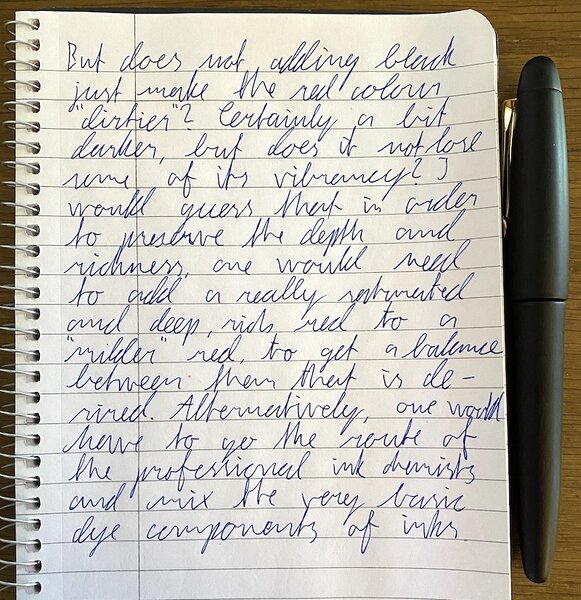 But does not adding black
just make the red colour
"dirtier"? Certainly a bit
darker, but does it not lose
some of its vibrancy? I
would guess that in order
to preserve the depth and
richness, one would need
to add a really saturated
and deep, rich red to a
"milder" red, to get a balance
between them that is de-
sired. Alternatively, one would
have to go the route of
the professional ink chemists
and mix the very basic
dye components of inks.